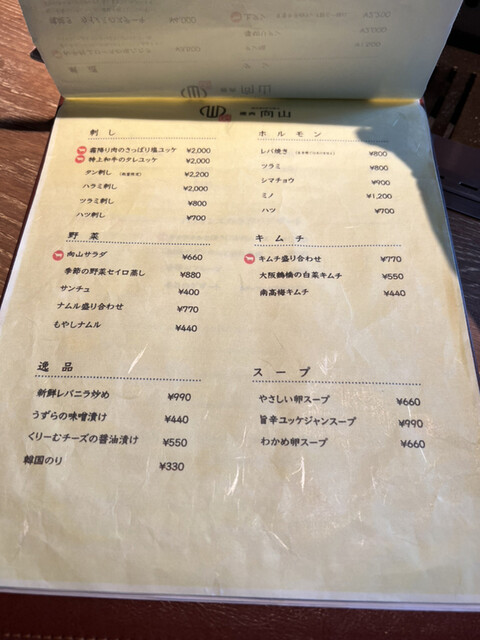 向山
刺し
霜降り肉のさっぱり塩ユッケ ¥2,000
特上和牛のタレユッケ ¥2,000
タン刺し ¥2,200
ハラミ刺し ¥2,000
ツラミ刺し ¥800
ハツ刺し ¥700
野菜
向山サラダ ¥660
季節の野菜セイロ蒸し ¥880
サンチュ ¥400
ナムル盛り合わせ ¥770
もやしナムル ¥440
逸品
新鮮レバニラ炒め ¥990
うずらの味噌漬け ¥440
くりーむチーズの醤油漬け ¥550
韓国のり ¥330
ホルモン
レバ焼き ¥800
ツラミ ¥800
シマチョウ ¥900
ミノ ¥1,200
ハツ ¥700
キムチ
キムチ盛り合わせ ¥770
大阪鶴橋の白菜キムチ ¥550
南高梅キムチ ¥440
スープ
やさしい卵スープ ¥660
旨辛ユッケジャンスープ ¥990
わかめ卵スープ ¥660